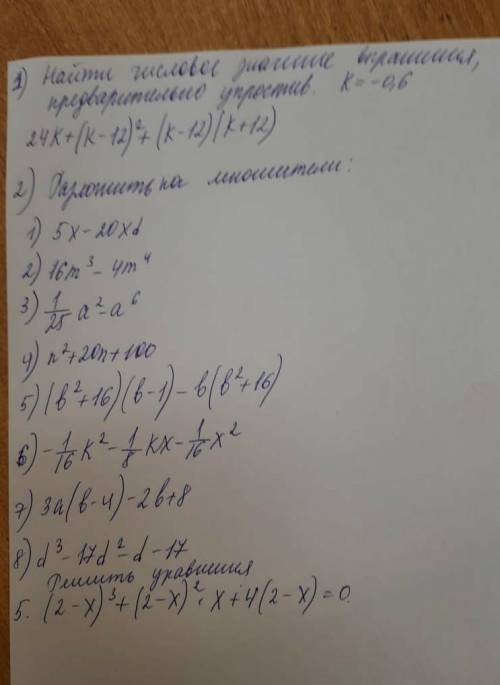 1) Найти числовое значение выражения,
предварительно упростив. K=-0,6
24K+(K-12)²+(K-12)(K+12)
2) Разложить на множители:
1) 5x-20xd
2) 16m³-4m⁴
3) 1/25 a²-a⁶
4) n²+20n+100
5) (b²+16)(b-1)-b(b²+16)
6) -1/16 K²-1/8 KX-1/16 X²
7) 3a(b-4)-2b+8
8) d³-17d²-d-17
Решить уравнения
5. (2-x)³+(2-x)²·x+4(2-x)=0.